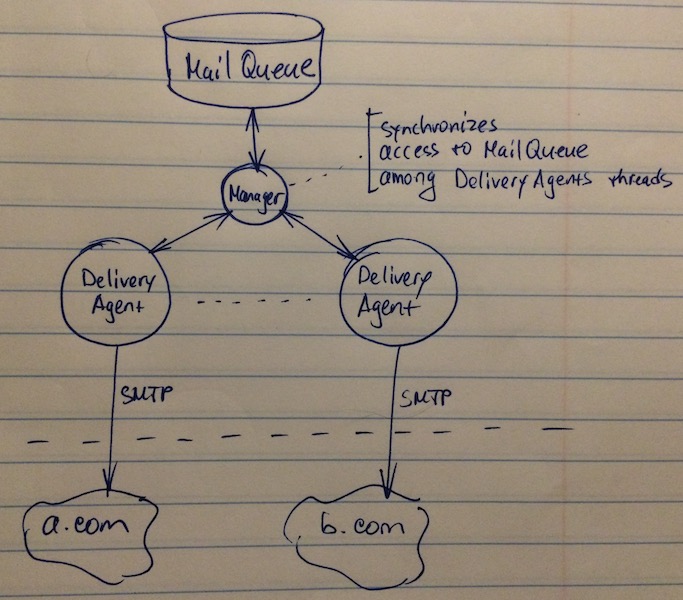 Mail Queue
synchronizes
access to Mail Queue
among Delivery Agents threads
Manager
Delivery
Agent
Delivery
Agent
SMTP
SMTP
a.com
b.com